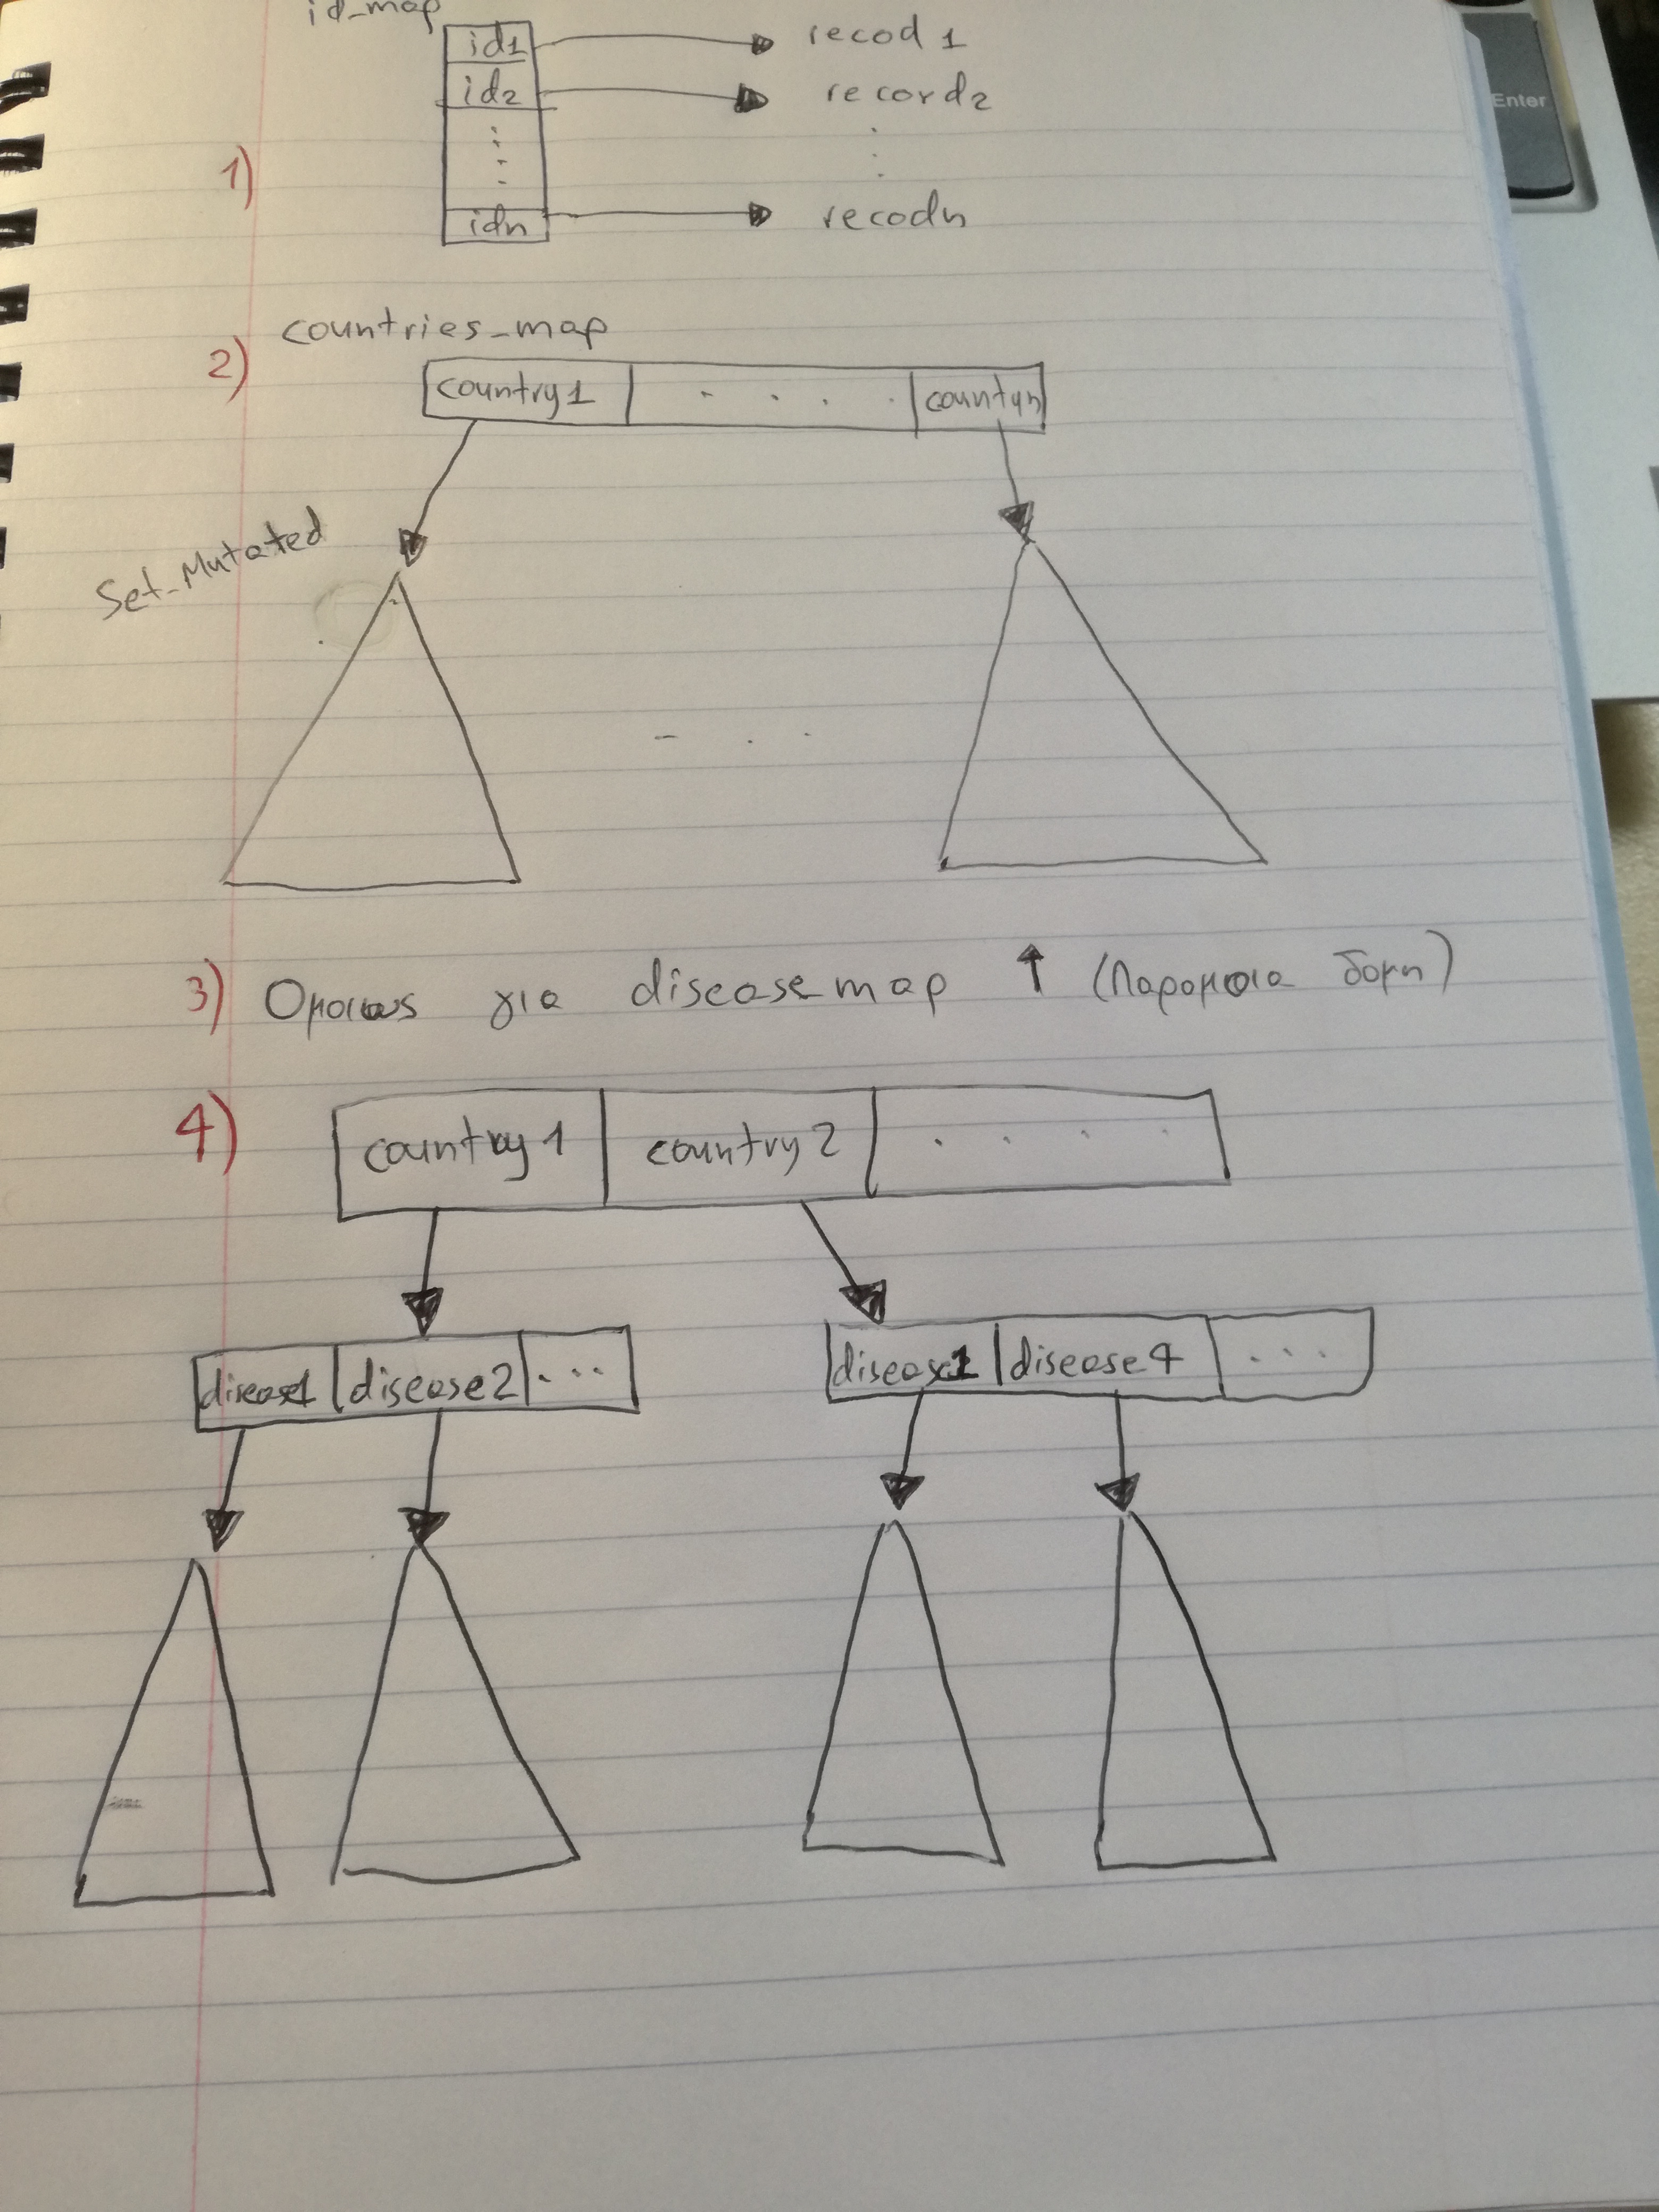 id_map
id1 recod 1
id2 record2
idn recodn
1)
2) countries_map
country1 countyn
Set_Mutated
3) Ομοιως για disease_map ↑ (Παρομοια δομη)
4)
country1 country2
disease1 disease2 ... disease1 disease4 ...
Enter